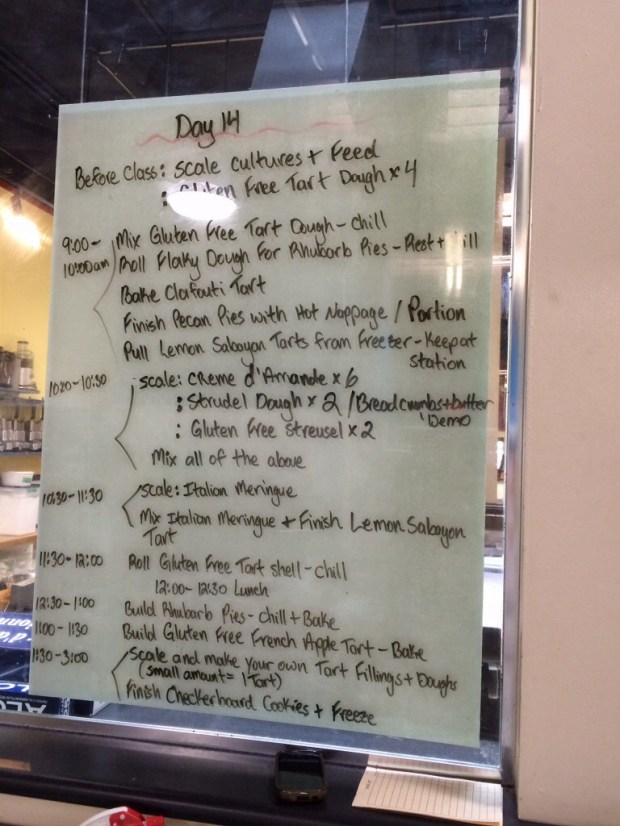 Day 14
Before Class: Scale Cultures + Feed
: Gluten Free Tart Dough x 4
9:00 - 10:00am Mix Gluten Free Tart Dough - chill
Roll Flaky Dough For Rhubarb Pies - Rest +
Bake Clafouti Tart
Finish Pecan Pies with Hot Nappage / Portion
Pull Lemon Sabayon Tarts from Freezer - Keep at
station
10:00 - 10:30 Scale: Creme d'Amande x 6
: Strudel Dough x 2 / Breadcrumbs + butter
Demo
: Gluten Free Streusel x 2
Mix all of the above
10:30 - 11:30 Scale: Italian Meringue
Mix Italian Meringue + Finish Lemon Sabayon
Tart
11:30 - 12:00 Roll Gluten Free Tart shell - chill
12:00 - 12:30 Lunch
12:30 - 1:00 Build Rhubarb Pies - chill + Bake
1:00 - 1:30 Build Gluten Free French Apple Tart - Bake
1:30 - 3:00 Scale and make your own Tart Fillings + Doughs
(small amount = 1 Tart)
Finish Checkerboard Cookies + Freeze